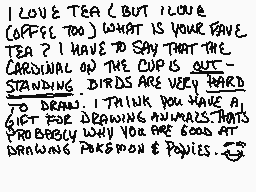 I LOVE TEA (BUT I LOVE
COFFEE TOO) WHAT IS YOUR FAVE
TEA? I HAVE TO SAY THAT THE
CARDINAL ON THE CUP IS OUT-
STANDING. BIRDS ARE VERY HARD
TO DRAW. I THINK YOU HAVE A
GIFT FOR DRAWING ANIMALS. THATS
PROBEBLY WHY YOU ARE GOOD AT
DRAWING POKEMON & PONIES.